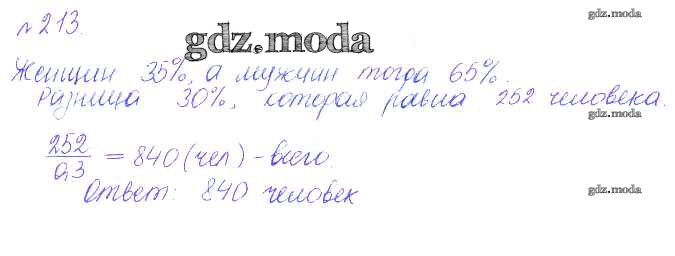 №213.
gdz.moda
gdz.moda
Женщин 35%, а мужчин тогда 65%.
gdz.moda
Разница 30%, которая равна 252 человека.
gdz.moda
252/0,3 = 840 (чел) - всего.
Ответ: 840 человек
gdz.moda